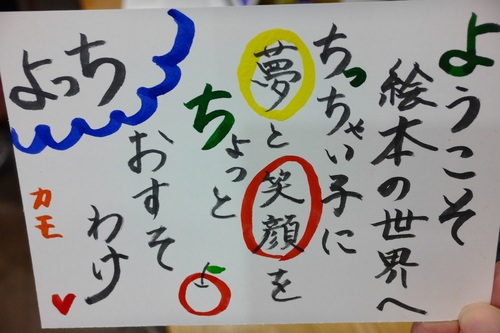 ようこそ
絵本の世界へ
ちっちゃい子に
夢と笑顔を
ちょっと
おすそ
わけ
よっち
カモ